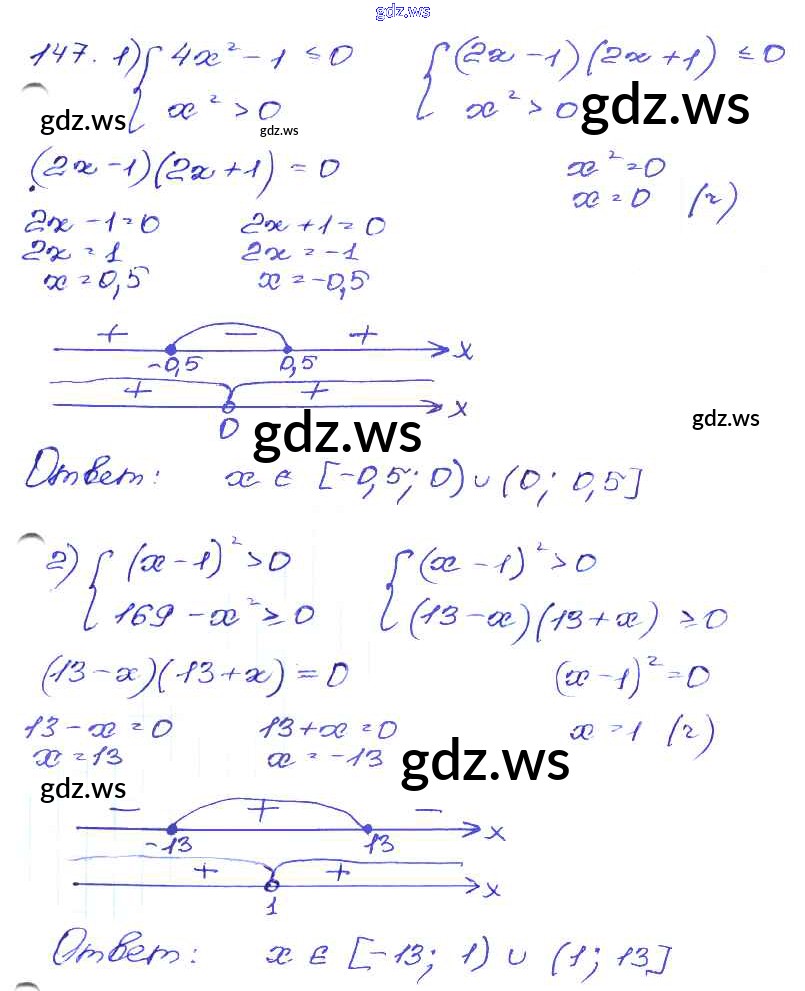 gdz.ws
147. 1) { 4x² - 1 ≤ 0 { (2x - 1)(2x + 1) ≤ 0
x² > 0 x² > 0
gdz.ws gdz.ws gdz.ws
(2x - 1)(2x + 1) = 0 x² = 0
2x - 1 = 0 2x + 1 = 0 x = 0 (r)
2x = 1 2x = -1
x = 0,5 x = -0,5
+ - +
-0,5 0,5 x
+ +
0 x
gdz.ws gdz.ws
Ответ: x ∈ [-0,5; 0) ∪ (0; 0,5]
2) { (x - 1)² > 0 { (x - 1)² > 0
169 - x² ≥ 0 (13 - x)(13 + x) ≥ 0
(13 - x)(13 + x) = 0 (x - 1)² = 0
13 - x = 0 13 + x = 0 x = 1 (r)
x = 13 x = -13
gdz.ws gdz.ws
- + -
-13 13 x
+ +
1 x
Ответ: x ∈ [-13; 1) ∪ (1; 13]